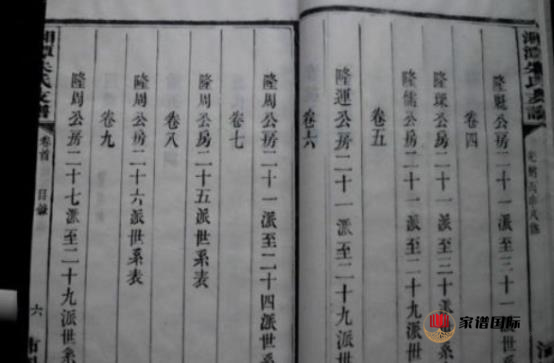 隆魁公房二十一派至三十一派世系
卷四
隆環公房二十一派至三十派世系
隆儲公房二十一派至二十九派世
卷五
隆運公房二十一派至二十九派世
卷六
隆周公房二十一派至二十四派世
卷七
隆周公房二十五派世系表
卷八
隆周公房二十六派世系表
卷九
隆周公房二十七派至二十九派世系
湘潭朱氏支譜
卷首
目錄
六
湘潭朱氏支譜
家谱国际